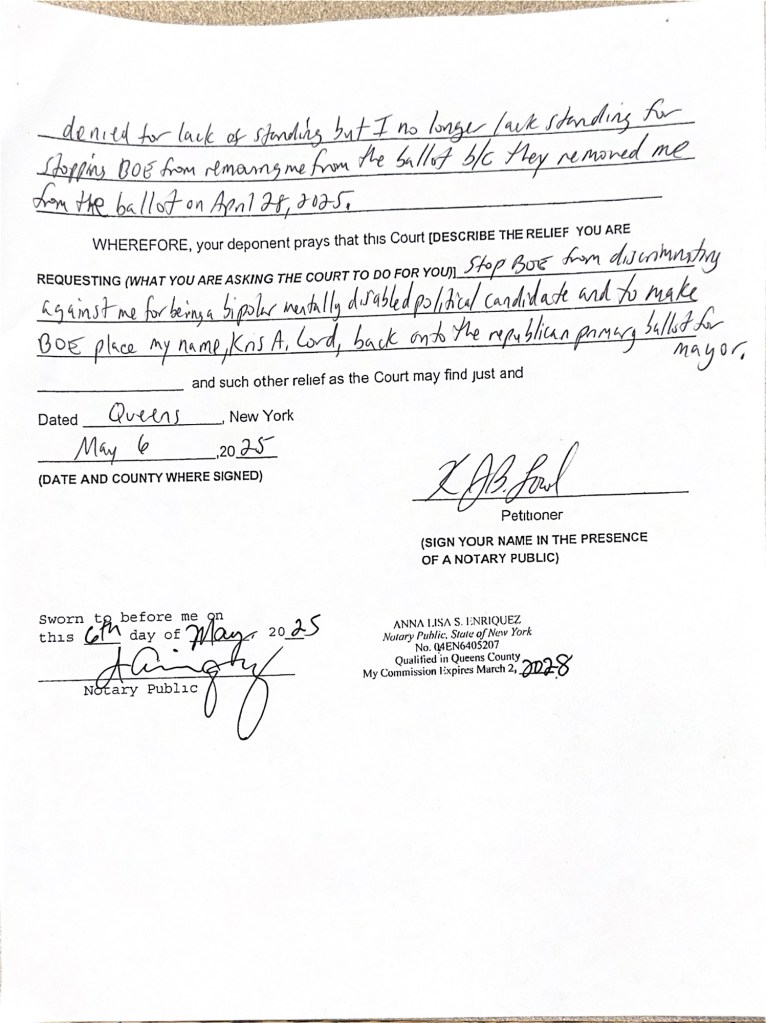 denied for lack of standing but I no longer lack standing for
stopping BOE from removing me from the ballot b/c they removed me
from the ballot on April 28, 2025.
WHEREFORE, your deponent prays that this Court [DESCRIBE THE RELIEF YOU ARE
REQUESTING (WHAT YOU ARE ASKING THE COURT TO DO FOR YOU)] Stop BOE from discriminating
against me for being a bipolar mentally disabled political candidate and to make
BOE place my name, Kris A. Lord, back onto the republican primary ballot for
mayor.
and such other relief as the Court may find just and
Dated Queens, New York
May 6, 2025
(DATE AND COUNTY WHERE SIGNED)
Petitioner
(SIGN YOUR NAME IN THE PRESENCE
OF A NOTARY PUBLIC)
Sworn to before me on
this 6th day of May, 2025
Notary Public
ANNA LISA S. ENRIQUEZ
Notary Public, State of New York
No. 04EN6405207
Qualified in Queens County
My Commission Expires March 2, 2028